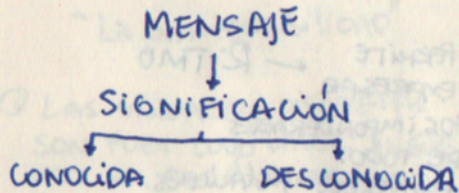 MENSAJE
SIGNIFICACIÓN
CONOCIDA DESCONOCIDA